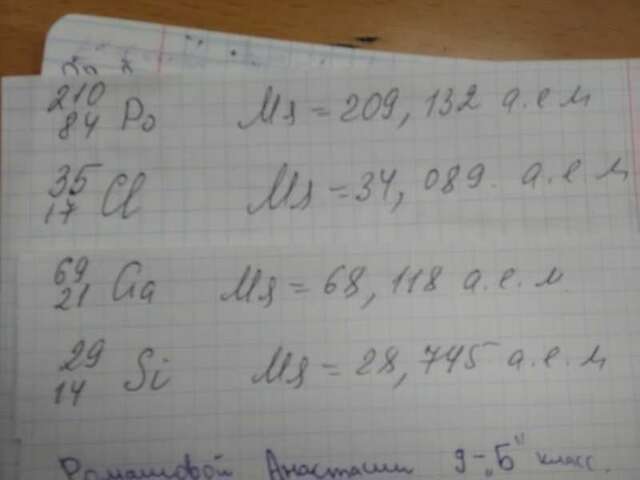 210
84 Po Mя = 209, 132 а.е.м
35
17 Cl Mя = 34, 089. а.е.м
69
21 Ga Mя = 68, 118 а.е.м.
29
14 Si Mя = 28, 745 а.е.м
Ромашовой Анастасии 9-„Б" класс.